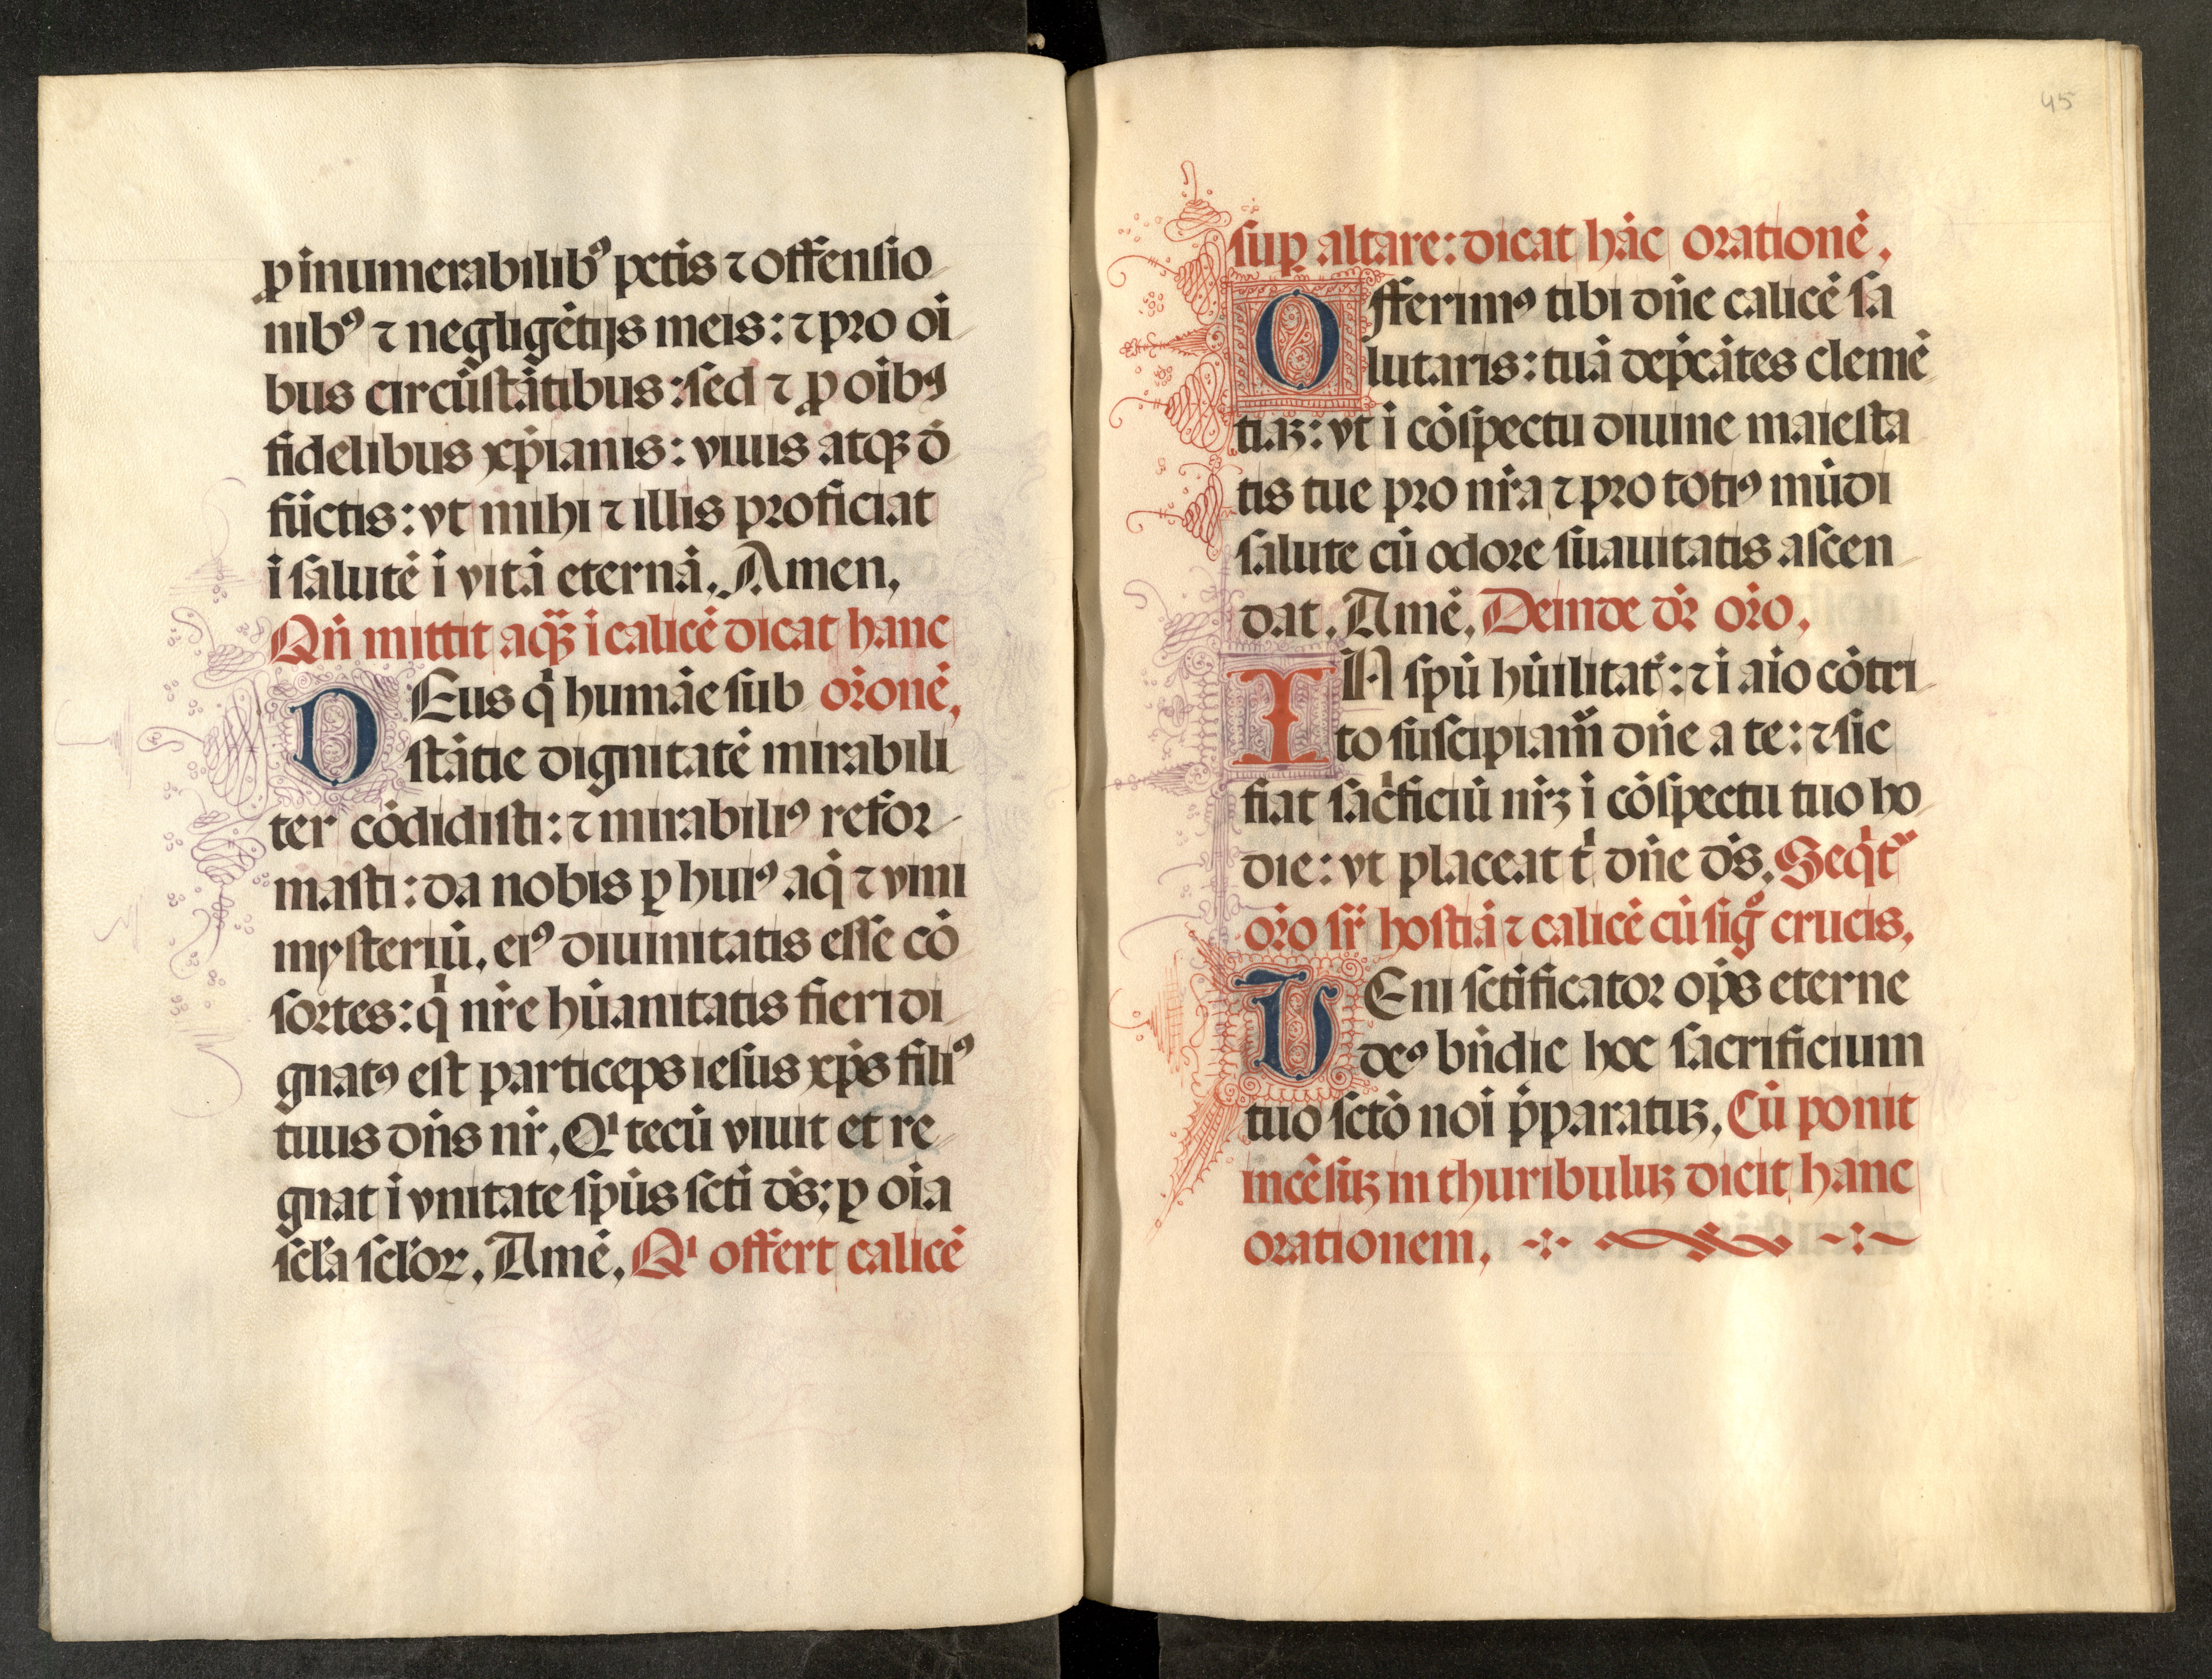 ꝓ inumerabilibꝰ pctis ⁊ offensio
nibꝰ ⁊ negligētijs meis: ⁊ pro oī
bus circūstātibus: sed ⁊ ꝓ oibꝰ
fidelibus xp̄ianis: viuis atqꝫ d̄
fūctis: vt mihi ⁊ illis proficiat
ī salutē ī vitā eternā. Amen.
Qn̄ mittit aqꝫ̄ ī calicē dicat hanc
DEus q̄ humāe sub or̄onē.
stātie dignitatē mirabili
ter cōdidisti: ⁊ mirabiliꝰ refor
masti: da nobis ꝑ huiꝰ aq̄ ⁊ vini
mysteriū. eiꝰ diuinitatis esse cō
sortes: q̄ nr̄e hūanitatis fieri di
gnatꝰ est particeps iesus xp̄s filiꝰ
tuus dn̄s nr̄. Qı tecū viuit et re
gnat ī vnitate spūs sctī d̄s: ꝑ oīa
scl̄a scl̄oꝝ. Amē. Qı offert calicē
45
suꝑ altare: dicat hāc orationē.
Offerimꝰ tibi dn̄e calicē sa
lutaris: tuā dep̄cātes clemē
tiaꝫ: vt ī cōspectu diuine maiesta
tis tue pro nr̄a ⁊ pro totiꝰ mūdi
salute cū odore suauitatis ascen
dat. Amē. Deinde dr̄ or̄o.
IN spū hūilitat̄: ⁊ ī aīo cōtri
to suscipiam̄ dn̄e a te: ⁊ sic
fiat sac̄ficiū nr̄ꝫ ī cōspectu tuo ho
die: vt placeat t̄ dn̄e d̄s. Seq̄t̄
or̄o sr̄ hostiā ⁊ calicē cū sig̊ crucis.
VEni sctificator op̄s eterne
deꝰ bn̄dic hoc sacrificium
tuo sctō noī p̄paratuꝫ. Cū ponit
incēsuꝫ in thuribuluꝫ dicit hanc
orationem.